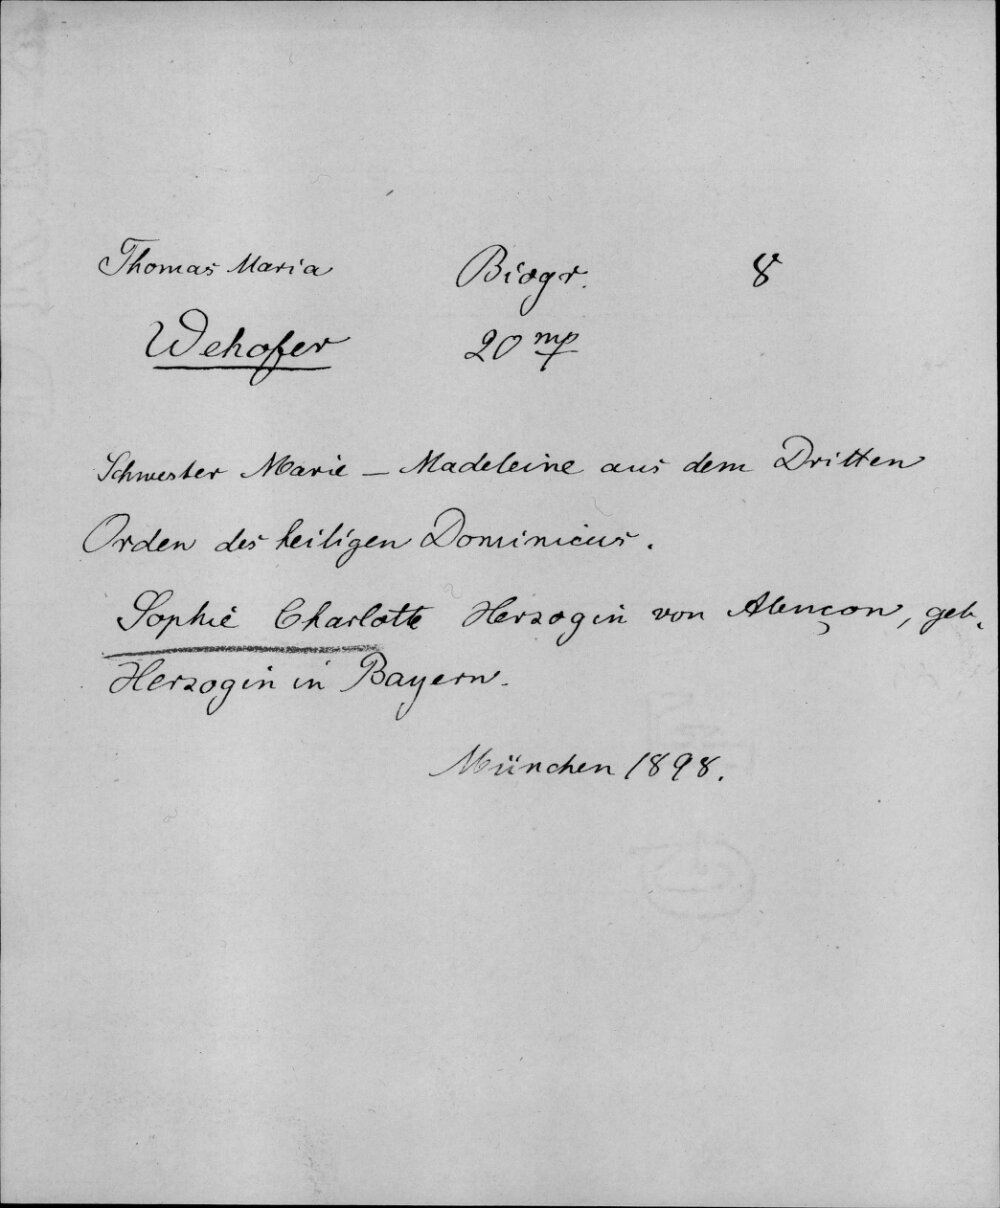 Thomas Maria Biogr. 8
Wehofer 20 mp
Schwester Marie - Madeleine aus dem Dritten
Orden des heiligen Dominicus.
Sophie Charlotte Herzogin von Alençon, geb.
Herzogin in Bayern.
München 1898.